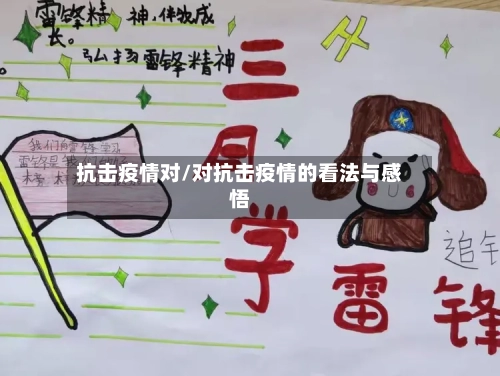 雷锋精 神,伴我成
长。
弘扬雷锋精神
三月学
雷锋
追
我们向雷锋学习
抗击疫情对/对抗击疫情的看法与感
悟